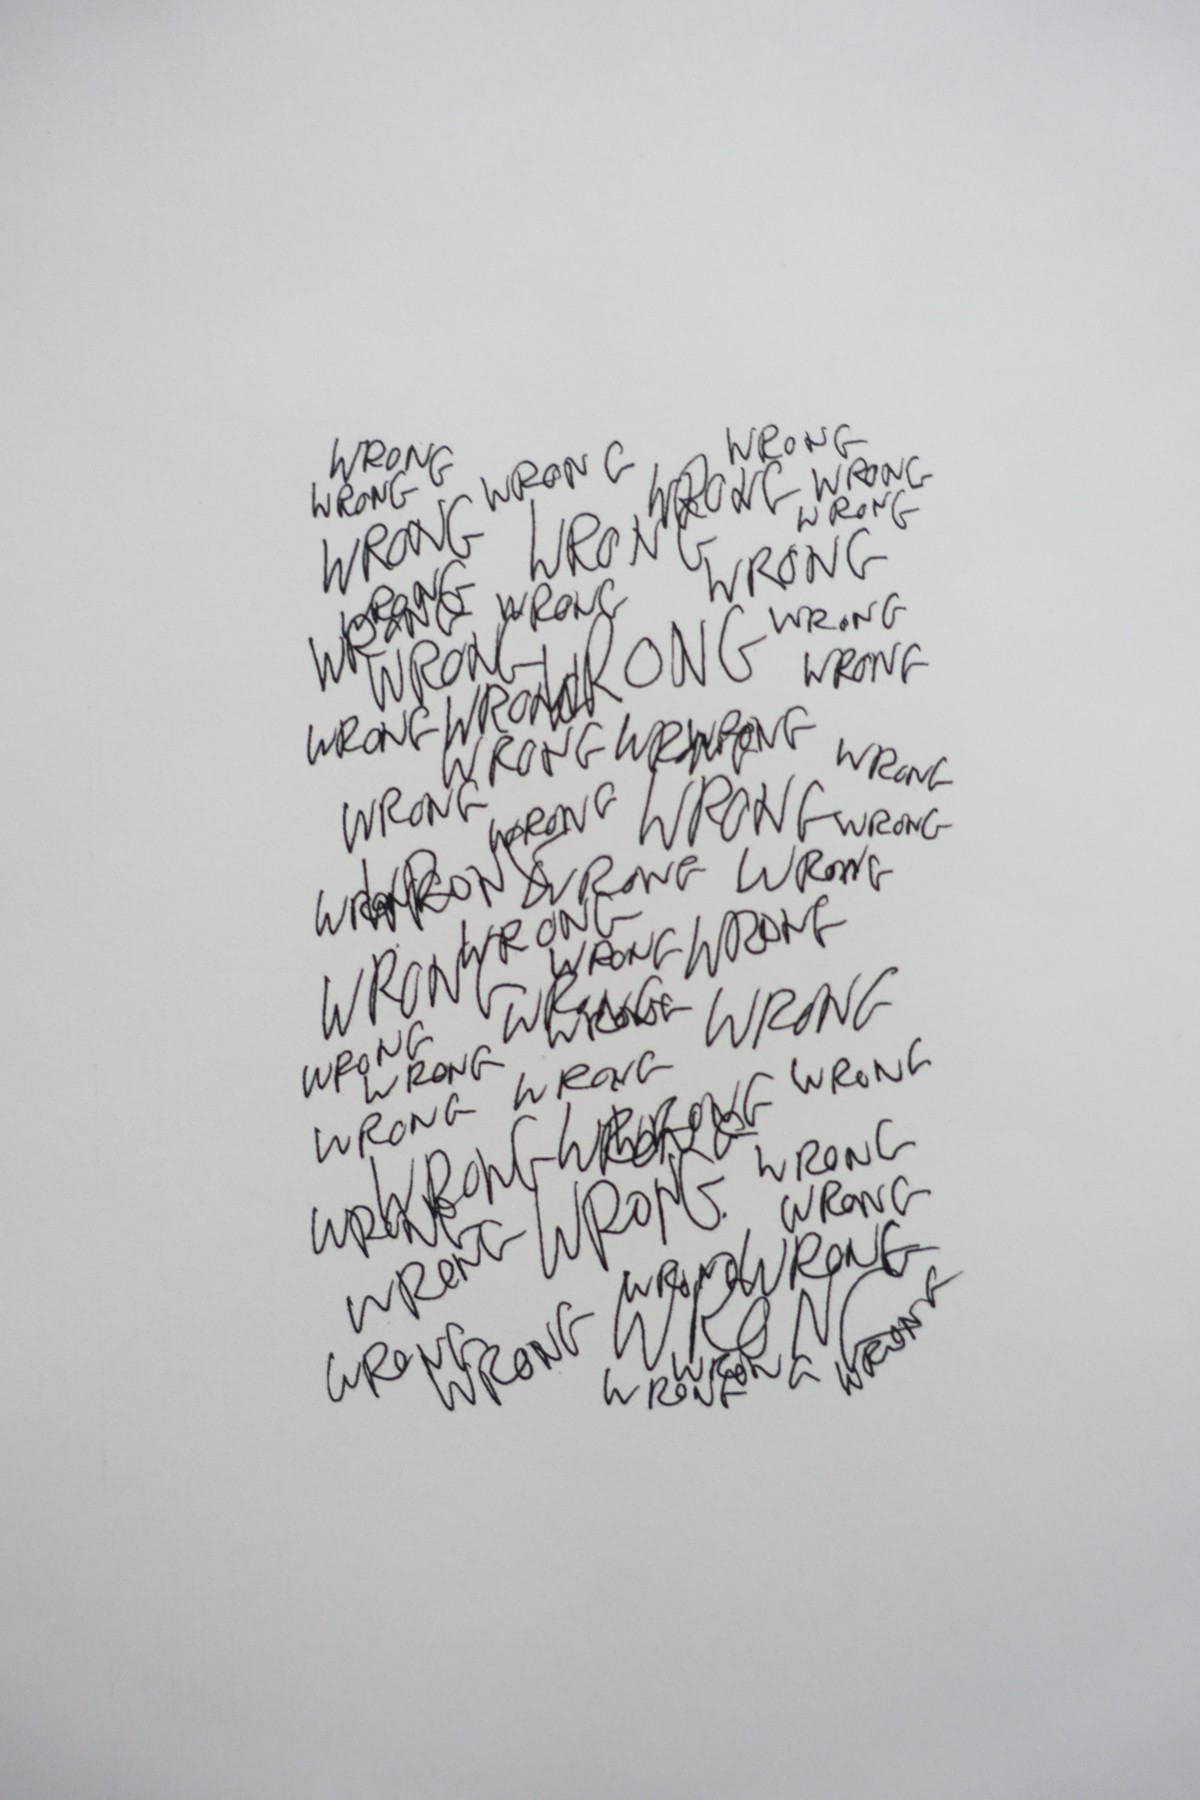 WRONG WRONG
WRONG WRONG WRONG WRONG
WRONG WRONG WRONG
WRONG WRONG
WRONG WRONG
WRONG WRONG
WRONG WRONG WRONG
WRONG WRONG WRONG
WRONG WRONG WRONG WRONG
WRONG WRONG WRONG WRONG
WRONG WRONG WRONG WRONG
WRONG WRONG WRONG
WRONG WRONG WRONG
WRONG WRONG WRONG WRONG
WRONG WRONG WRONG
WRONG WRONG WRONG
WRONG WRONG WRONG
WRONG WRONG WRONG
WRONG WRONG WRONG
WRONG WRONG WRONG
WRONG WRONG WRONG
WRONG WRONG WRONG